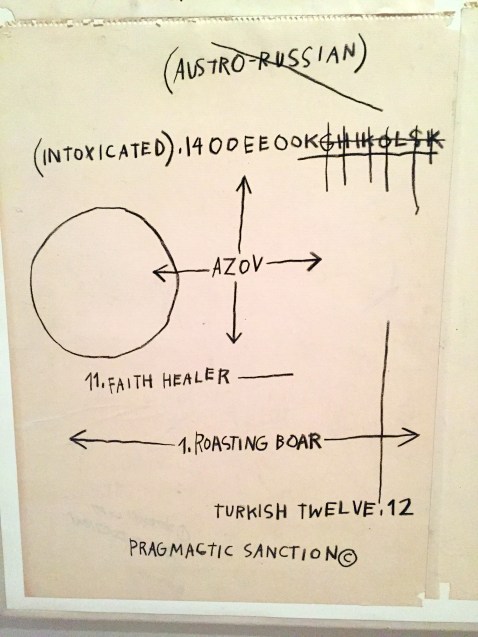 (AUSTRO-RUSSIAN)
(INTOXICATED).1400EEOOKGHIKOLSK
AZOV
11.FAITH HEALER
1.ROASTING BOAR
TURKISH TWELVE.12
PRAGMACTIC SANCTION©